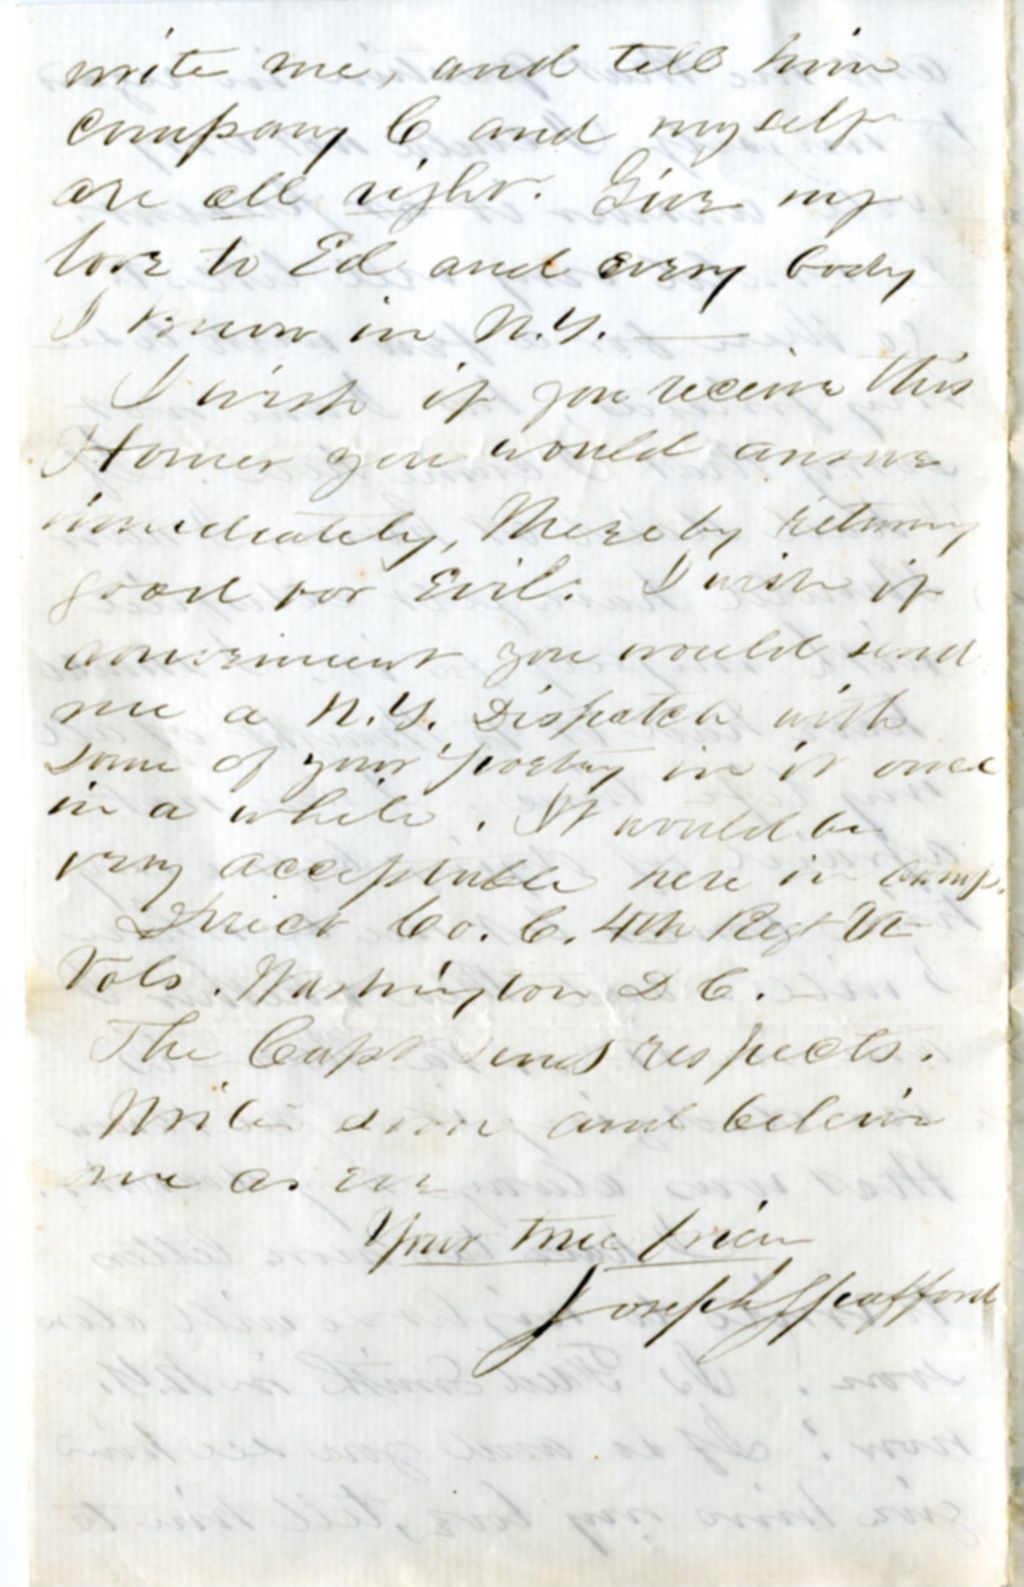 write me, and tell him
company C and myself
are all right. Give my
love to Ed and every body
I know in N.Y. —
I wish if you receive this
Homer you would answer
immediately, thereby returning
good for Evil. I wish if
convenient you would send
me a N.Y. Dispatch with
some of your poetry in it once
in a while. It would be
very acceptable here in camp.
Direct Co. C. 4th Regt Vt
Vols. Washington D C.
The Capt sends respects.
Write soon and believe
me as ever
Your true friend
Joseph Spafford